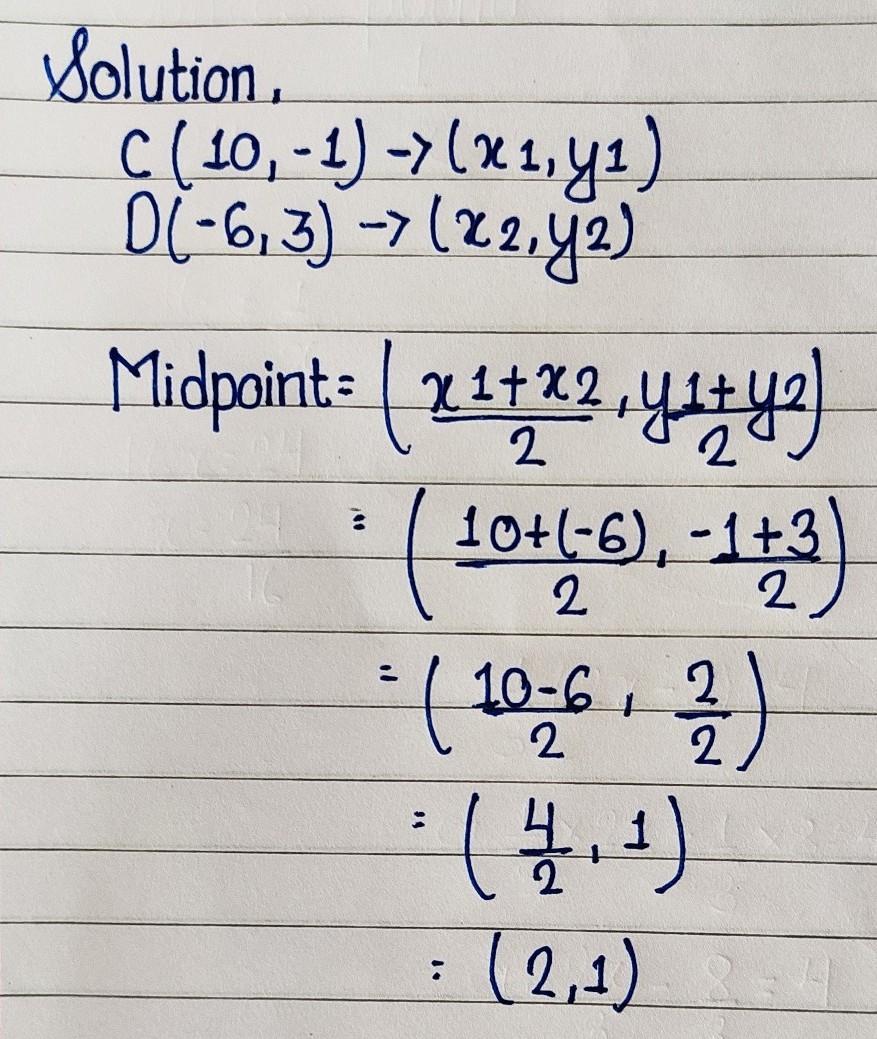 Solution,
C(10,-1) -> (x1,y1)
D(-6,3) -> (x2,y2)
Midpoint = ( x1+x2 , y1+y2 )
2 2
= ( 10+(-6) , -1+3 )
2 2
= ( 10-6 , 2 )
2 2
= ( 4 , 1 )
2
= (2,1)